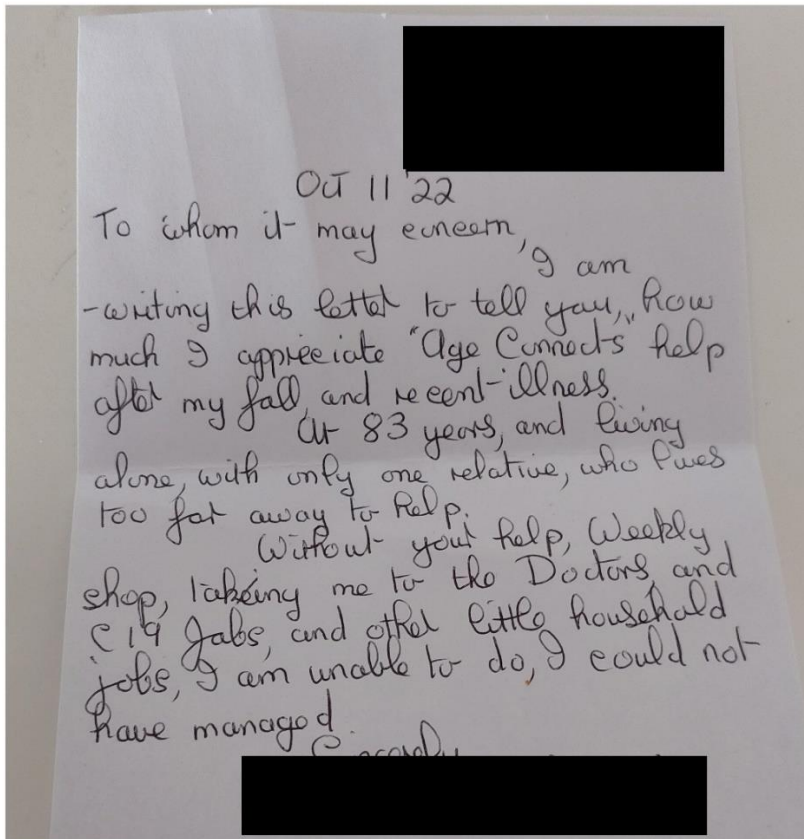 Oct 11 '22
To whom it may concern,
I am
-writing this letter to tell you, how
much I appreciate "Age Connects" help
after my fall, and recent illness.
At 83 years, and living
alone, with only one relative, who lives
too far away to help.
Without your help, Weekly
shop, takeing me to the Doctors, and
C19 Jabs, and other little household
jobs, I am unable to do, I could not
have managed.